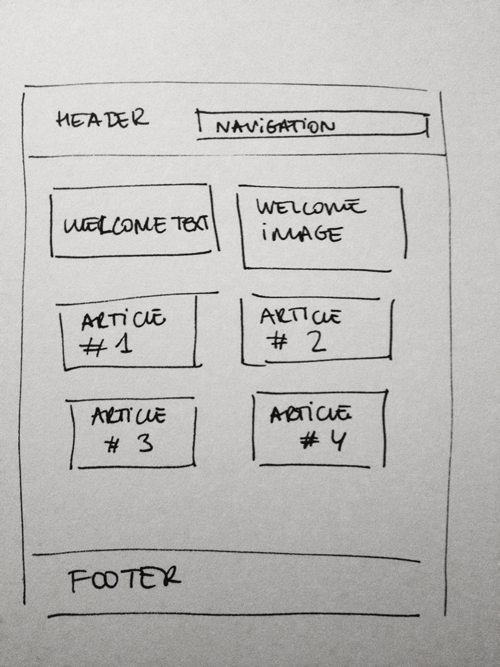 HEADER
NAVIGATION
WELCOME TEXT
WELCOME
IMAGE
ARTICLE
# 1
ARTICLE
# 2
ARTICLE
# 3
ARTICLE
# 4
FOOTER